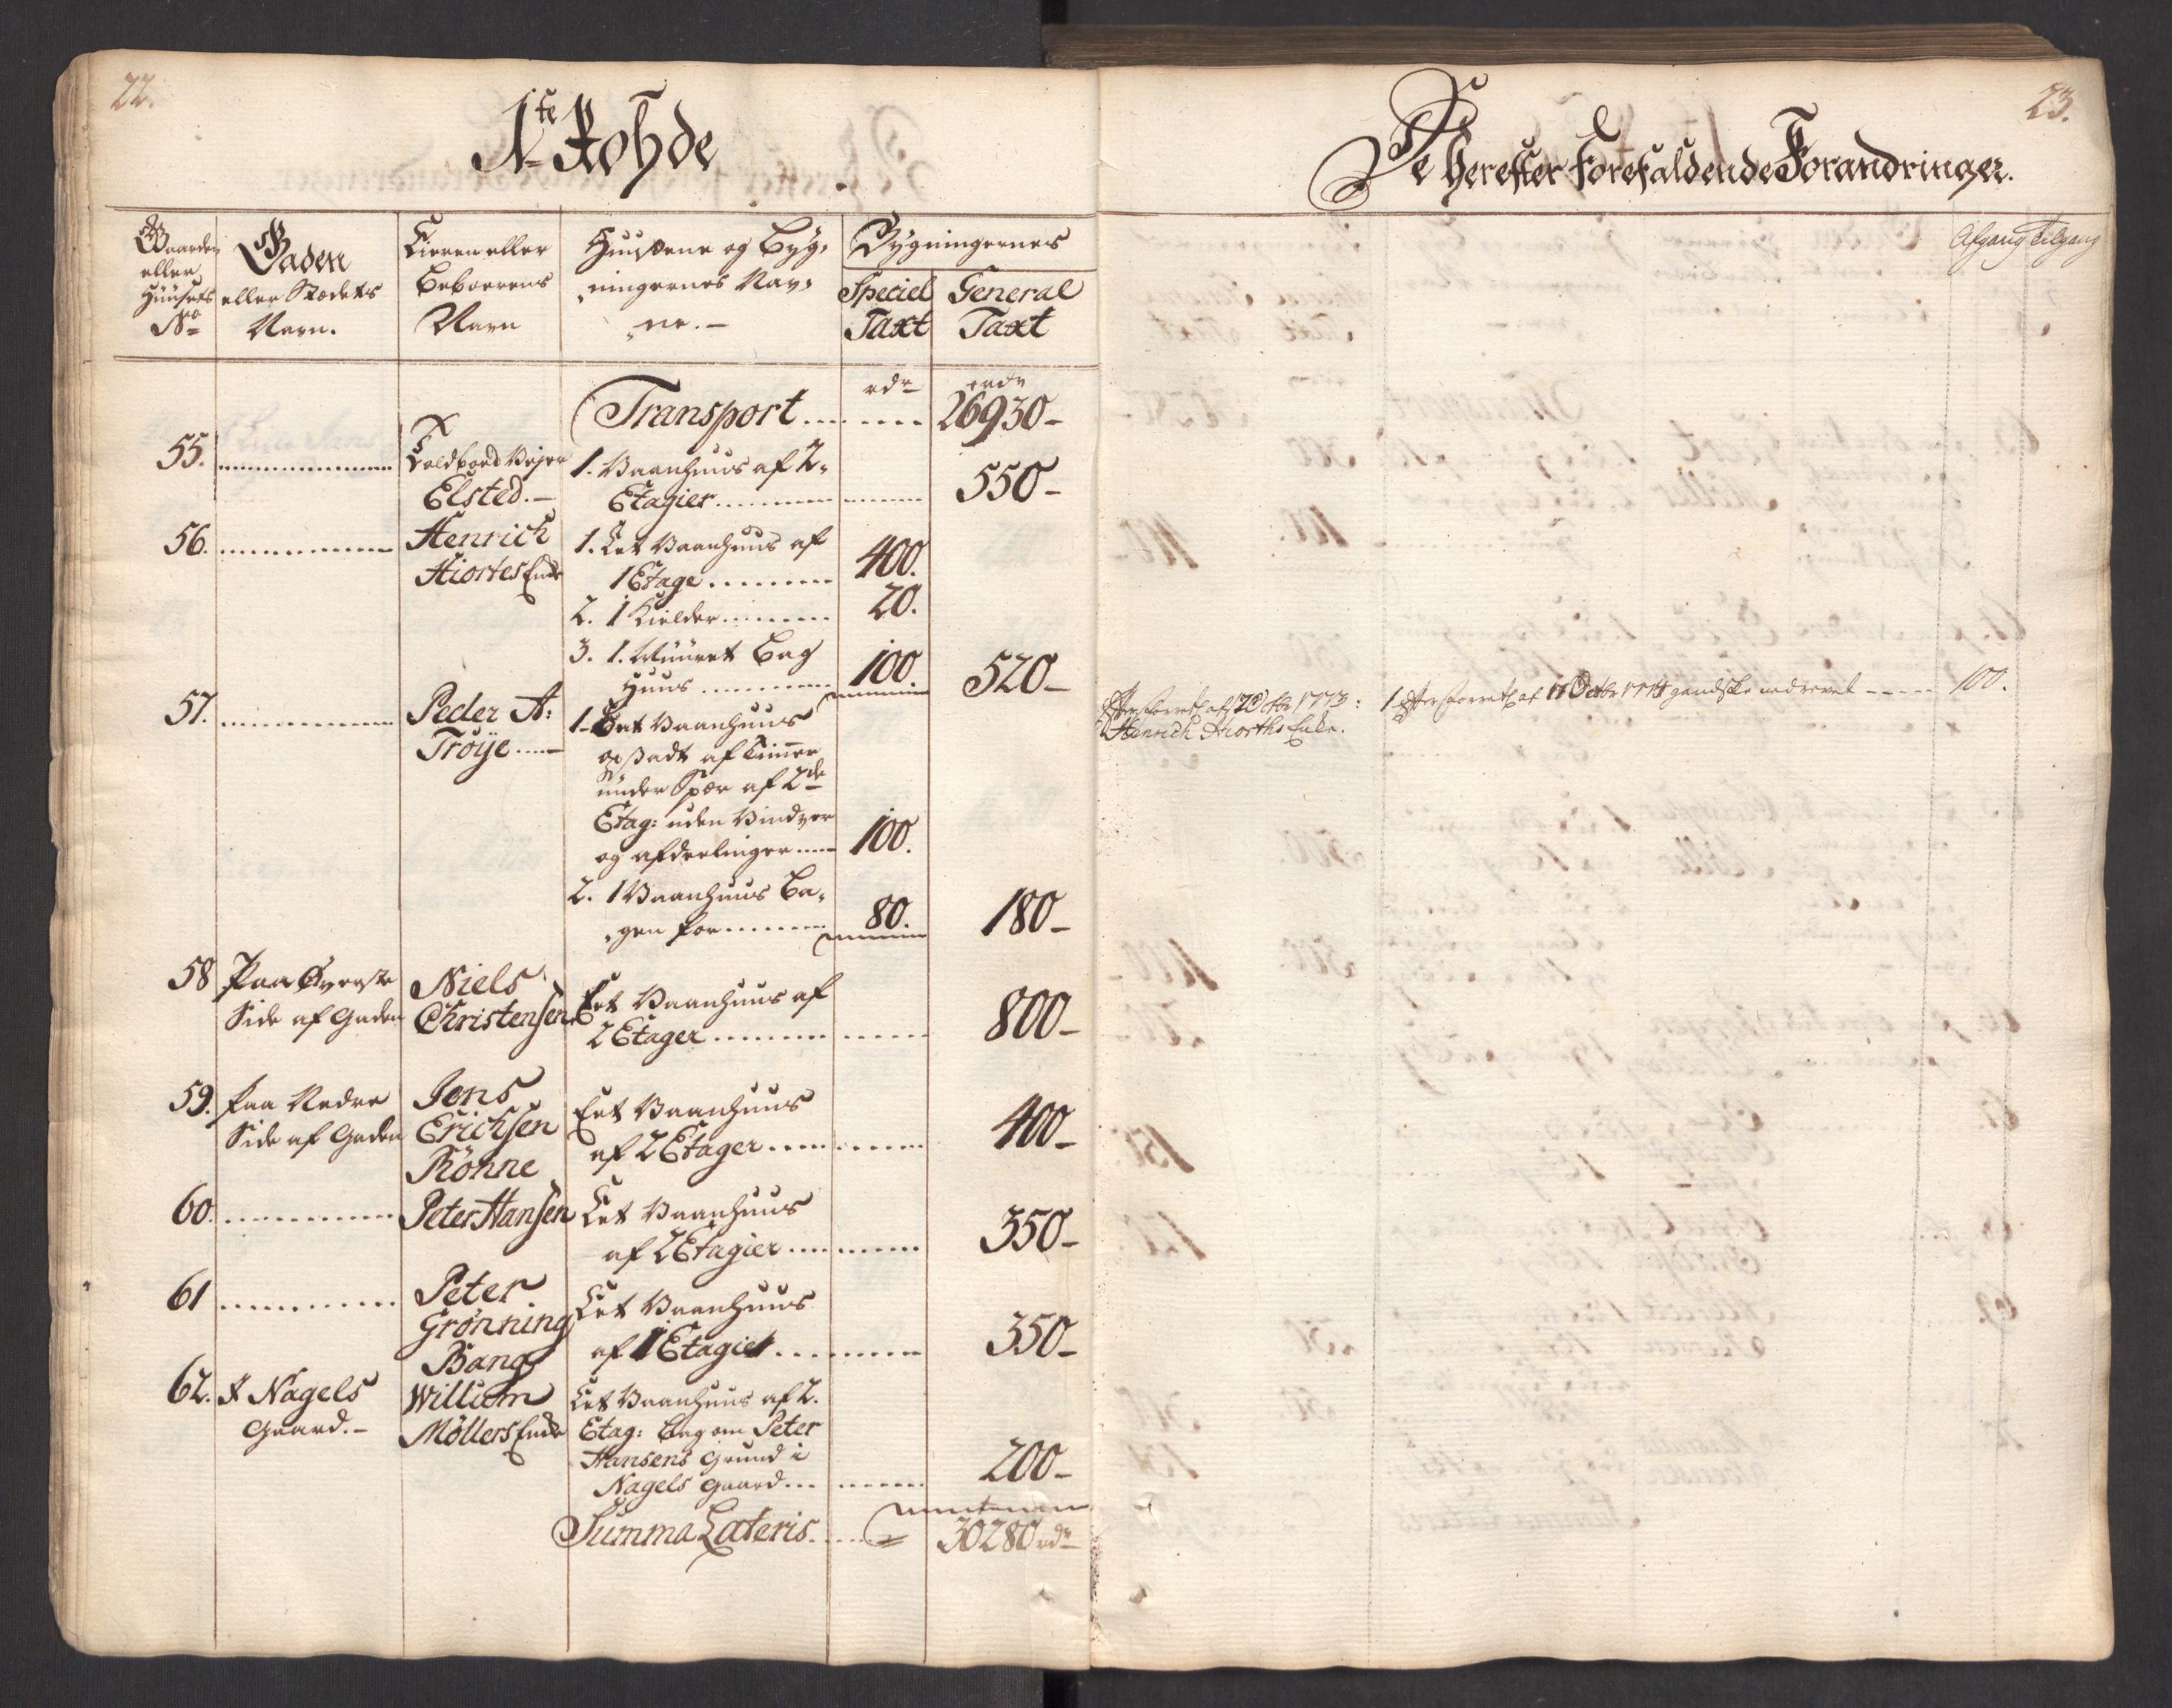 22.
1te Rohde
Gaarden
eller
Hüüsets
No
Gaden
eller Stædets
Navn.
Eieren eller
Beboerens
Navn
Huusene og Byg-
ningernes Nav-
ne.-
Bygningernes
Speciel
Taxt
General
Taxt
rdr
rdr
Transport ........ 26930-
55. ............ Toldboed Vejer
Elsted.-
1. Vaanhuus af 2-
Etagier ............ 550-
56. ............ Henrich
Hiortes Enke
1. Eet Vaanhuus af
1 Etage ........ 400.
2. 1 Kielder ........ 20.
3. 1. Müüret Bag
Huus ........ 100. 520-
57. ............ Peder A:
Tröÿe .....
1- Eet Vaanhuus
opsadt af Timmer
ünder Spær af 2de
Etag: uden Vinduer
og afdeelinger ..... 100.
2. 1 Vaanhuus Ba-
gen for ........ 80. 180-
58 Paa Øverste
Side af Gaden
Niels
Christensen
Eet Vaanhuus af
2 Etager ............ 800-
59. Paa Nedre
Side af Gaden
Jens
Erichsen
Rönne
Eet Vaanhuus
af 2 Etager ............ 400-
60. ............ Peter Hansen
Eet Vaanhuus
af 2 Etagier ............ 350-
61 ............ Peter
Grönning
Bang
Eet Vaanhuus
af 1 Etagie ............ 350-
62. I Nagels
Gaard.-
William
Möllers Enke
Eet Vaanhuus af 2.
Etag: bag om Peter
Hansens Grund i
Nagels Gaard ........ 200-
Summa Lateris ...... 30280 rdr
23.
De herefter Forefaldende Forandringer.
Afgang Tilgang
1773:
Henrich Hiorths Enke.
1 af 17 Octbr gandske nedrevet ----- 100.